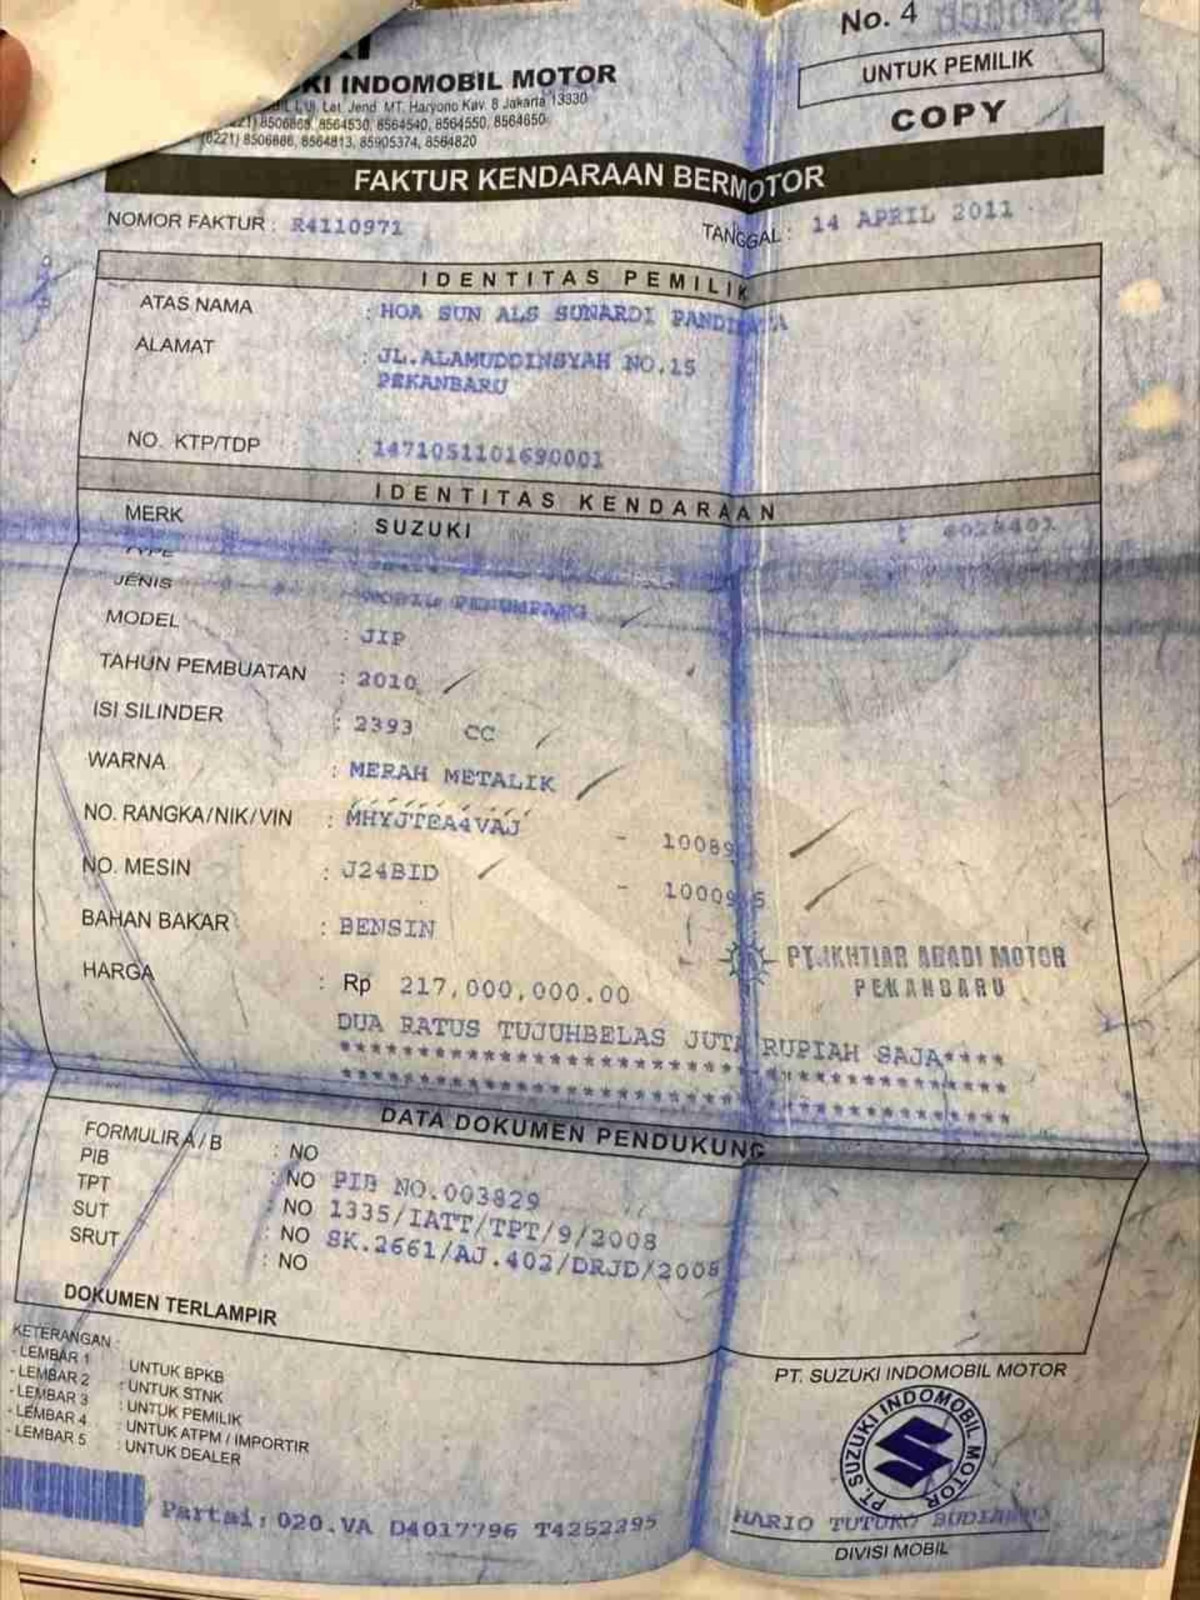 No. 4
UNTUK PEMILIK
COPY
KI INDOMOBIL MOTOR
Jl. Let. Jend. MT. Haryono Kav. 8 Jakarta 13330
8506868, 8564530, 8564540, 8564550, 8564650
(6221) 8506886, 8564813, 85905374, 8564820
FAKTUR KENDARAAN BERMOTOR
NOMOR FAKTUR : R4110971
TANGGAL : 14 APRIL 2011
IDENTITAS PEMILIK
ATAS NAMA : HOA SUN ALS SUNARDI
ALAMAT : JL.ALAMUDDINSYAH NO.15
PEKANBARU
NO. KTP/TDP : 1471051101690001
IDENTITAS KENDARAAN
MERK : SUZUKI
TYPE
JENIS : MOBIL PENUMPANG
MODEL : JIP
TAHUN PEMBUATAN : 2010
ISI SILINDER : 2393 CC
WARNA : MERAH METALIK
NO. RANGKA/NIK/VIN : MHYJTEA4VAJ - 10089
NO. MESIN : J24BID -
BAHAN BAKAR : BENSIN
PT.IKHTIAR ABADI MOTOR
PEKANBARU
HARGA : Rp 217,000,000.00
DUA RATUS TUJUHBELAS JUTA RUPIAH SAJA****
DATA DOKUMEN PENDUKUNG
FORMULIR A / B : NO
PIB : NO PIB NO.003829
TPT : NO 1335/IATT/TPT/9/2008
SUT : NO SK.2661/AJ.402/DRJD/2008
SRUT : NO
DOKUMEN TERLAMPIR
KETERANGAN :
- LEMBAR 1 : UNTUK BPKB
- LEMBAR 2 : UNTUK STNK
- LEMBAR 3 : UNTUK PEMILIK
- LEMBAR 4 : UNTUK ATPM / IMPORTIR
- LEMBAR 5 : UNTUK DEALER
PT. SUZUKI INDOMOBIL MOTOR
PT. SUZUKI INDOMOBIL MOTOR
Partai: 020.VA D4017796 T4252295
HARIO TUTUKO
DIVISI MOBIL